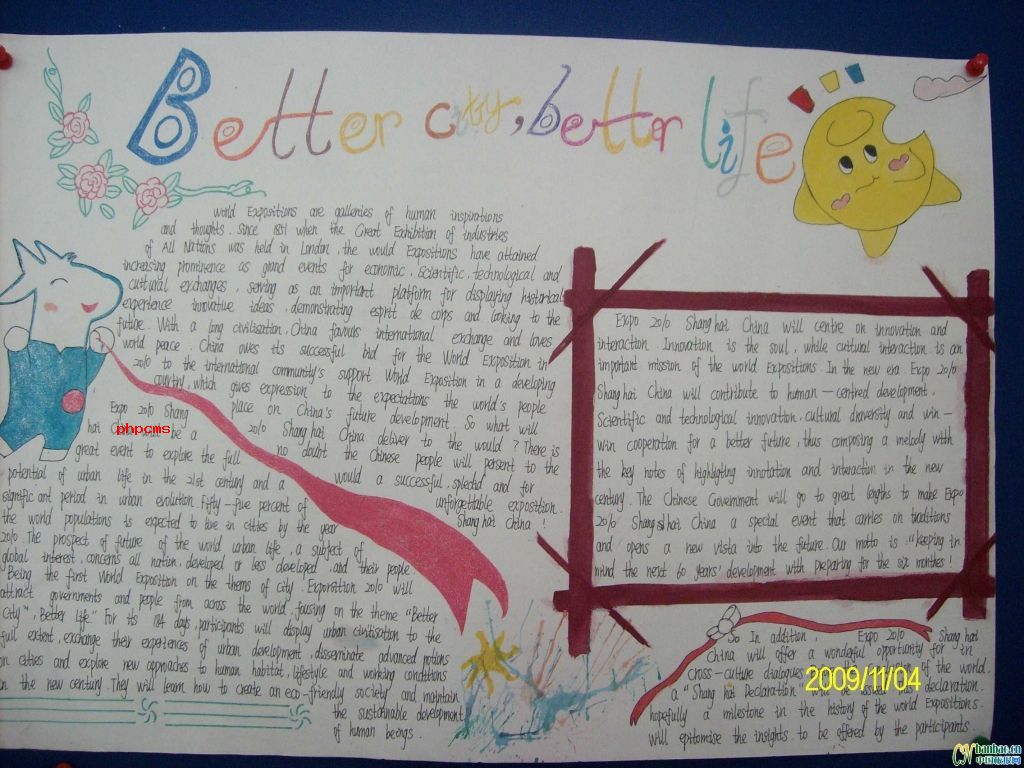 Better city, better life
World Expositions are galleries of human inspirations
and thoughts. Since 1851 when the Great Exhibition of industries
of All Nations was held in London, the would Expositions have attained
increasing prominence as grand events for economic, scientific, technological and
cultural exchanges, serving as an important platform for displaying historical
experience innovative ideas, demonstrating esprit de corps and looking to the
future. With a long civilisation, China favours international exchange and loves
world peace. China owes its successful bid for the World Exposition in
2010 to the international community's support World Exposition in a developing
country, which gives expression to the expectations the world's people
place on China's future development. So what will
2010 Shanghai China deliver to the would? There is
no doubt the Chinese people will persent to the
would a successful, spledid and for
unforgettable exposition.
Shanghai China!
Expo 2010 Shang
hai China will be a
great event to explore the full
potential of urban life in the 21st century and a
significant period in urban evolution. Fifty-five percent of
the world populations is expected to live in cities by the year
2010. The prospect of future of the world urban life, a subject of
global interest, concerns all nation, developed or less developed, and their people
Being the first World Exposition on the thems of city. Exporation 2010 will
attract governments and people from across the world, fousing on the theme "Better
City", Better Life" For its 184 days, participants will display urban civilisation to the
full extent, exchange their experiences of urban development, disseminate advanced notions
on cities and explore new approaches to human habitat, lifestyle and working conditions
in the new century. They will learn how to create an eco-friendly society and maintain
the sustainable development
of human beings.
Expo 2010 Shanghai China will centre on innovation and
interaction. Innovation is the soul, while cultural interaction is an
important mission of the world Expositions. In the new era. Expo 2010
Shanghai China will contribute to human-centred development,
Scientific and technological innovation, cultural dviersity and win-
win cooperation for a better future, thus composing a melody with
the key notes of highligting innotation and interaction in the new
century. The Chinese Government will go to great lengths to make Expo
2010 Shangshai China a special event that carries on traditions
and opens a new vista into the future. Our motto is: "keeping in
mind the next 60 years' development with preparing for the six monthes!
So In addition, Expo 2010 Shanghai
China will offer a wonderful opportunity for in
cross-culture dialogues of the world.
a "Shanghai Declaration" will be issued declaration.
hopefully a milestone in the history of the world Expositions.
will epitomise the insights to be offered by the participants
phpcms
2009/11/04
banbao.cn